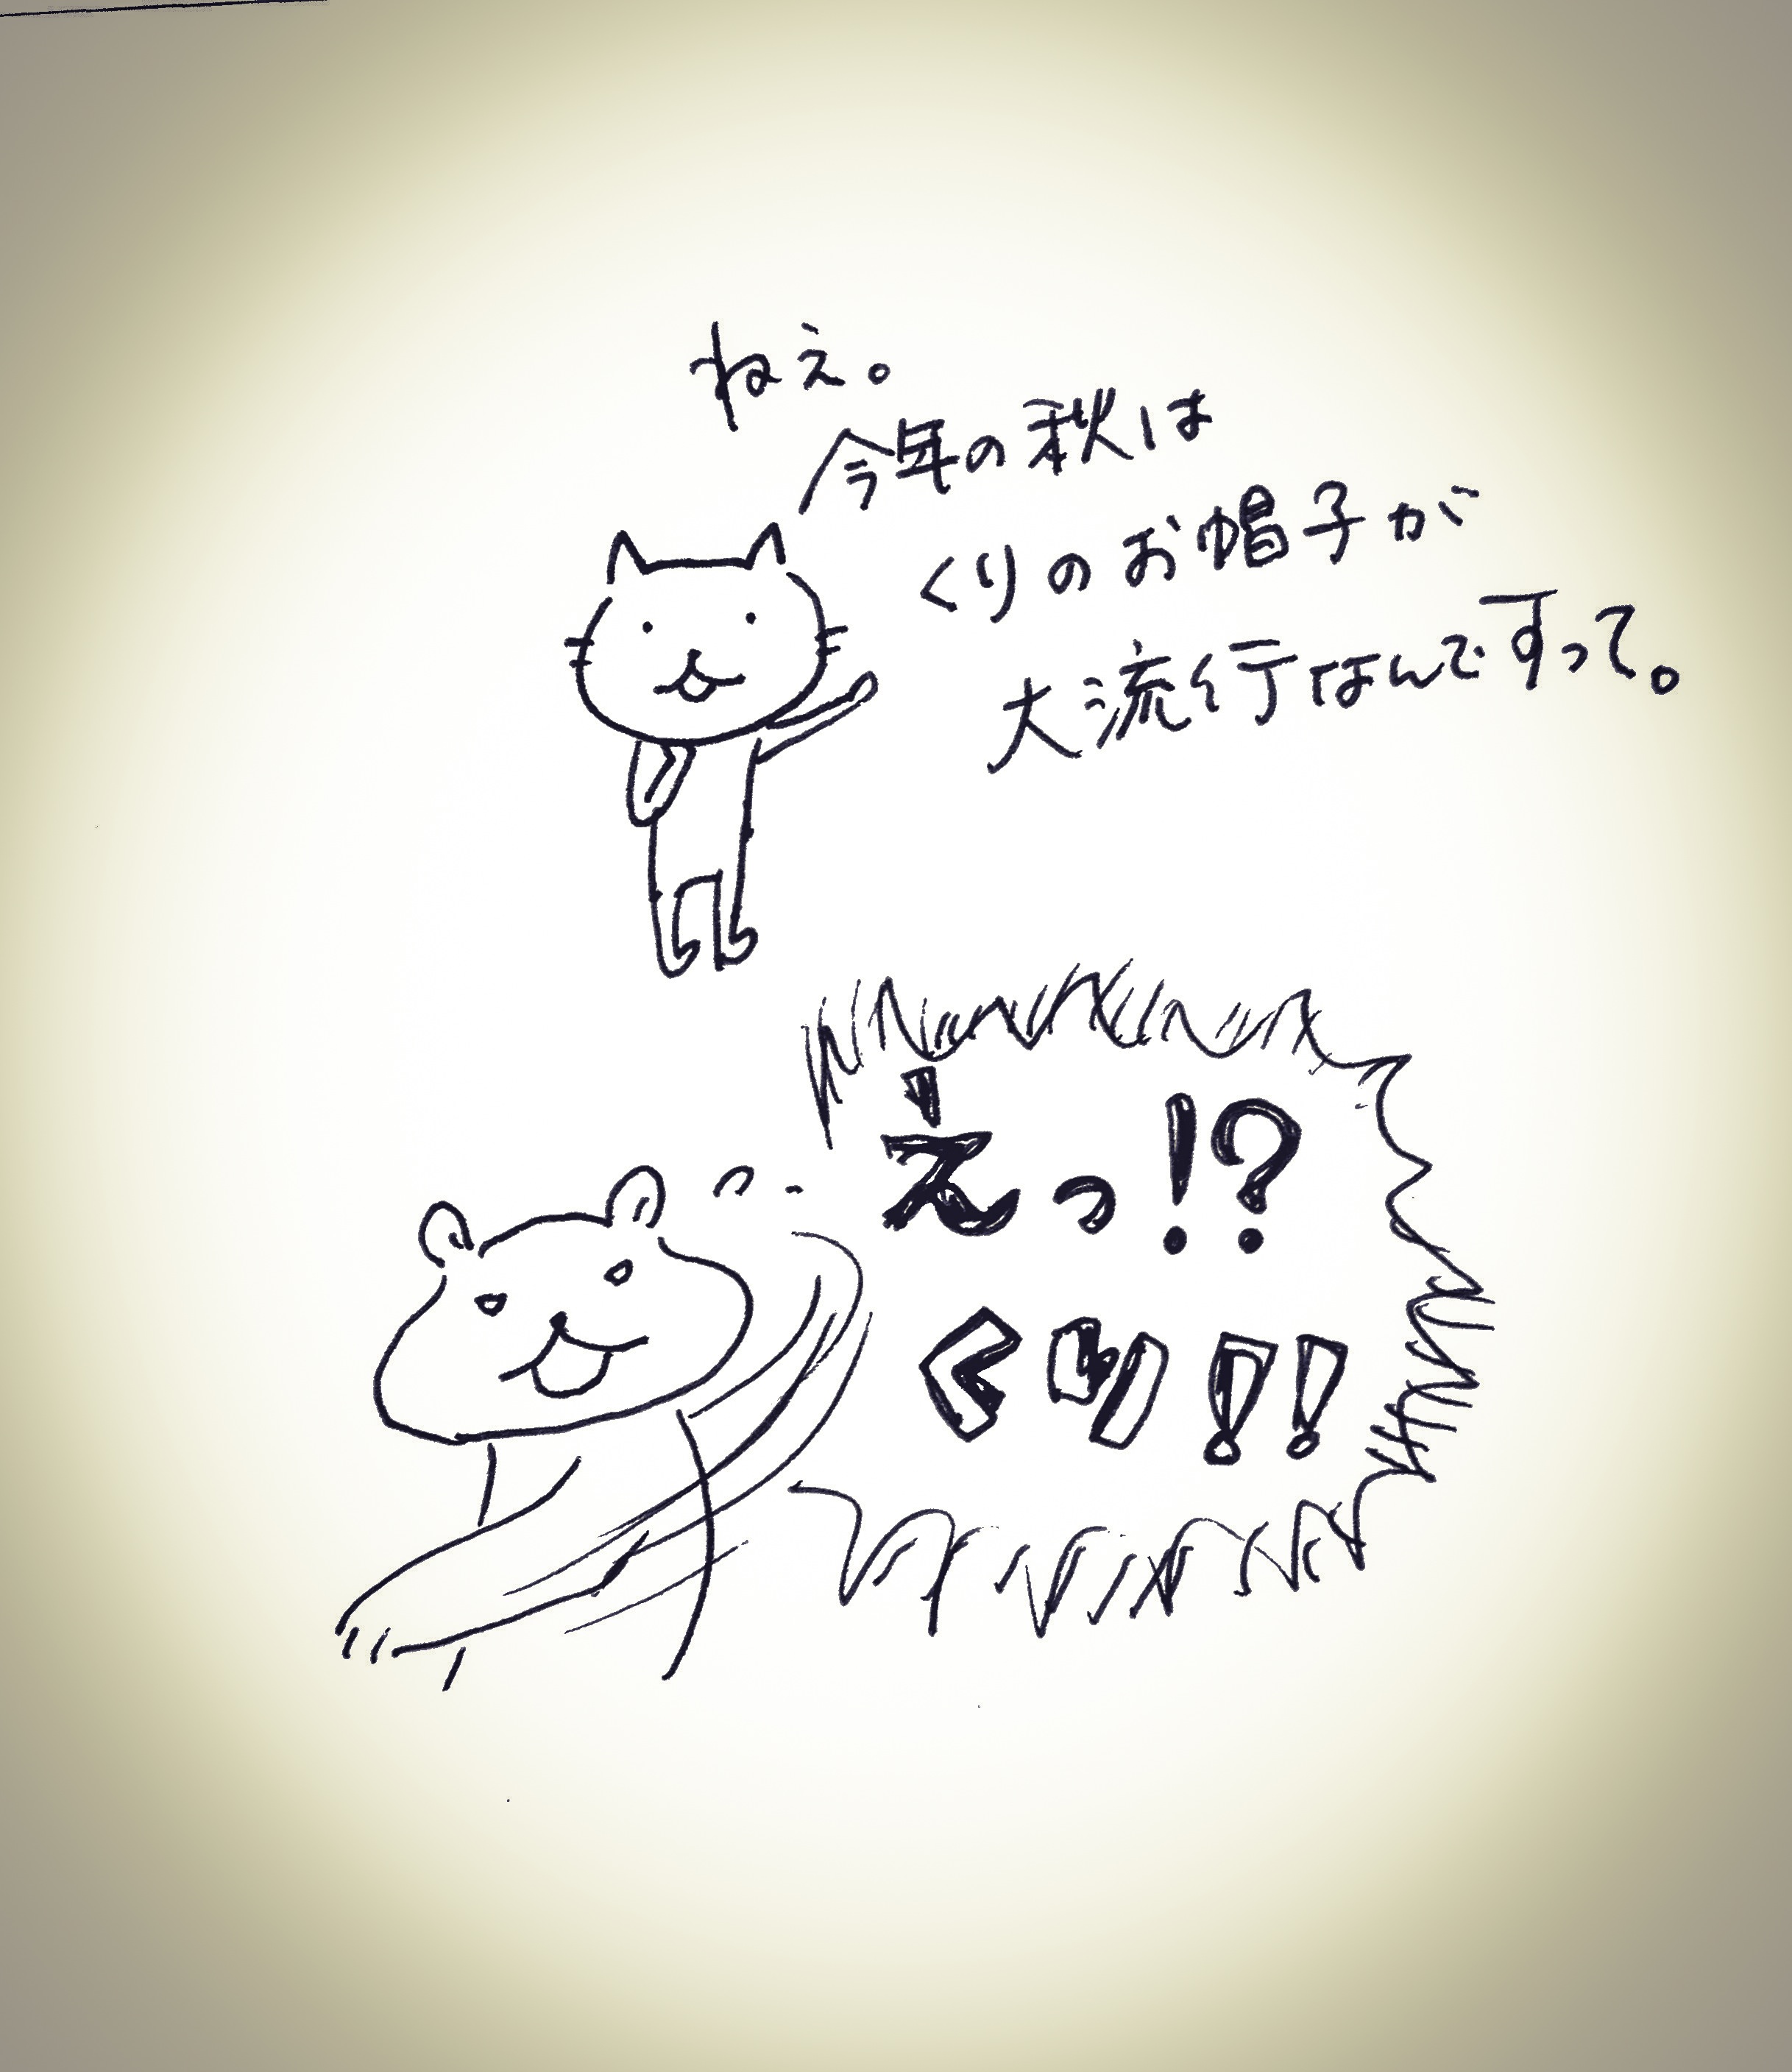 ねえ。
今年の秋は
くりのお帽子が
大流行なんですって。
えっ!?
くり!!